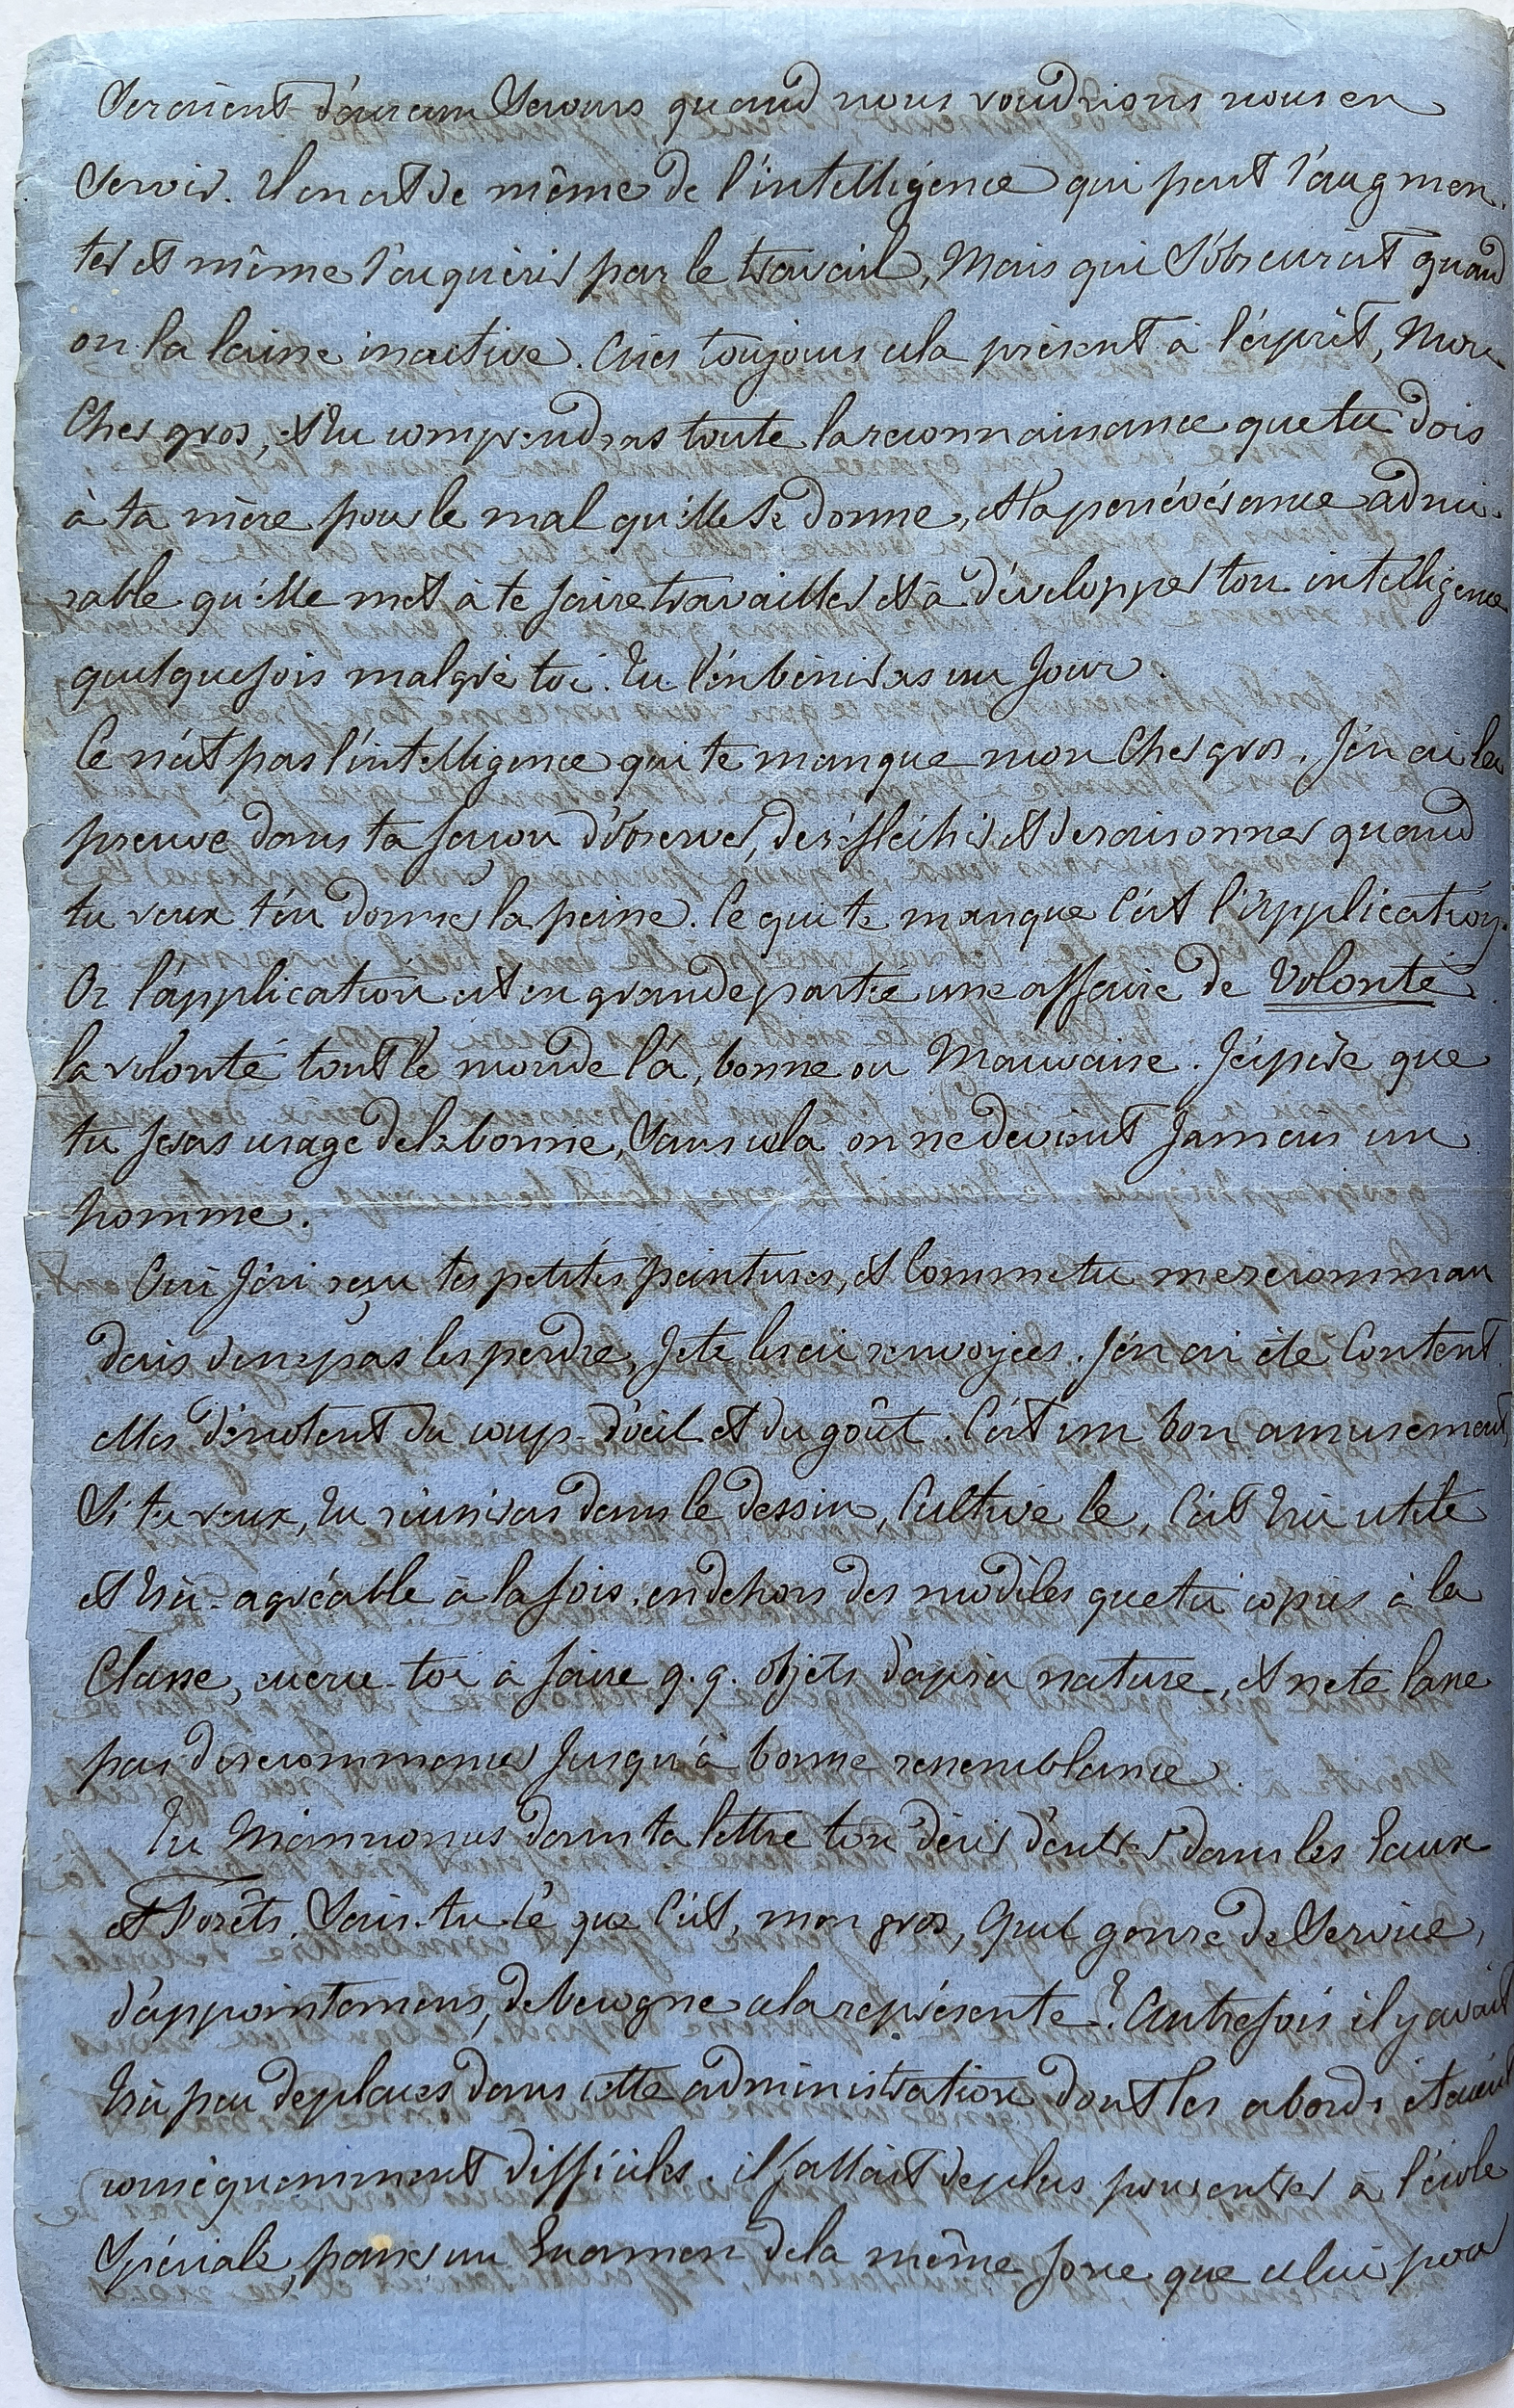 seraient d'aucun secours quand nous voudrions nous en
servir. Il en est de même de l'intelligence qui peut s'augmen-
ter et même s'acquérir par le travail, mais qui s'obscurcit quand
on la laisse inactive. Aies toujours cela présent à l'esprit, mon
cher gros, et tu comprendras toute la reconnaissance que tu dois
à ta mère pour le mal qu'elle se donne, et la persévérance admi-
rable qu'elle met à te faire travailler et à développer ton intelligence
quelquefois malgré toi. Tu l'en béniras un jour.
Ce n'est pas l'intelligence qui te manque mon cher gros. J'en ai la
preuve dans ta façon d'observer, de réfléchir et de raisonner quand
tu veux t'en donner la peine. Ce qui te manque c'est l'application.
Or l'application est en grande partie une affaire de volonté.
la volonté tout le monde l'a, bonne ou mauvaise. J'espère que
tu feras usage de la bonne, sans cela on ne devient jamais un
homme.
Oui j'ai reçu tes petites peintures, et comme tu me recomman
dais de ne pas les perdre, je te les ai renvoyées. J'en ai été content.
elles dénotent du coup-d'œil et du goût. C'est un bon amusement,
si tu veux, tu réussiras dans le dessin, cultive le, c'est très utile
et très-agréable à la fois. en dehors des modèles que tu copies à la
classe, exerce-toi à faire q.q. objets d'après nature, et ne te lasse
pas de recommencer jusqu'à bonne ressemblance.
Tu m'annonces dans ta lettre ton désir d'entrer dans les Eaux
et Forêts. Sais-tu ce que c'est, mon gros, quel genre de service,
d'appointemens, de besogne cela représente? Autrefois il y avait
très peu de places dans cette administration dont les abords étaient
conséquemment difficiles. il fallait de plus pour entrer à l'école
spéciale, passer un Examen de la même force que celui pour